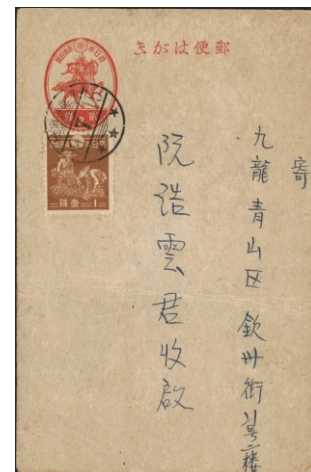 郵便はがき
寄
九龍青山区欽州街31号二楼
阮浩雲君收啟